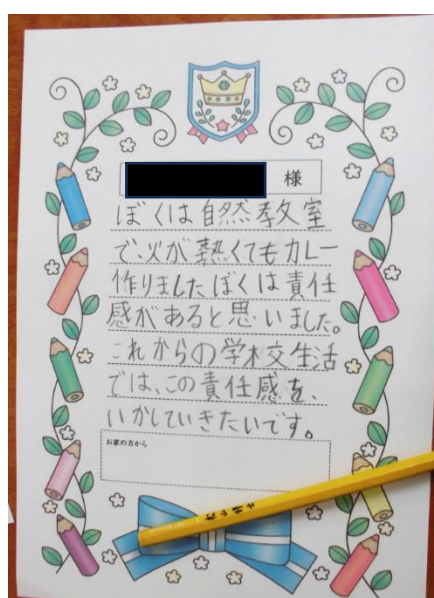 様
ぼくは自然教室
で、火が熱くてもカレー
作りましたぼくは責任
感があると思いました。
これからの学校生活
では、この責任感を、
いかしていきたいです。
お家の方から